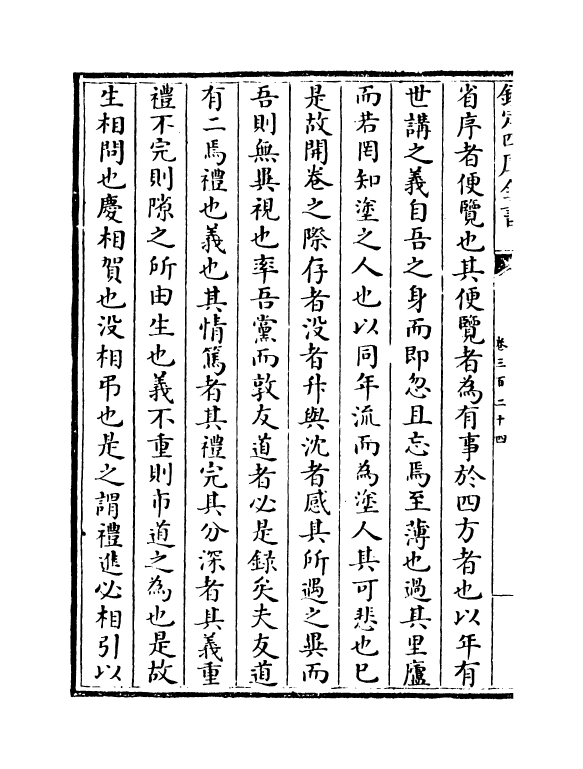 欽定四庫全書
卷三百二十四
省序者便覽也其便覽者為有事於四方者也以年有
世講之義自吾之身而即忽且忘焉至薄也過其里廬
而若罔知塗之人也以同年流而為塗人其可悲也已
是故開卷之際存者没者升與沈者感其所遇之異而
吾則無異視也率吾黨而敦友道者必是録矣夫友道
有二焉禮也義也其情篤者其禮完其分深者其義重
禮不完則隙之所由生也義不重則市道之為也是故
生相問也慶相賀也没相弔也是之謂禮進必相引以